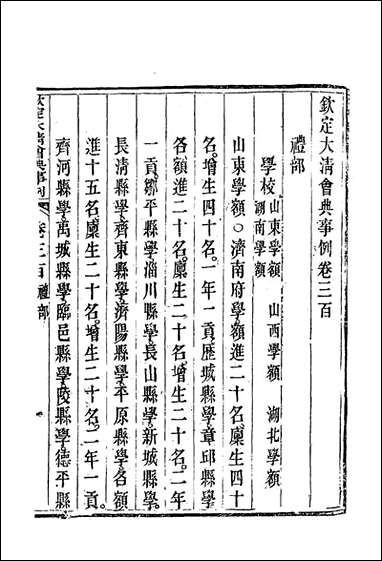 欽定大清會典事例卷三百
禮部
學校 山東學額 山西學額 湖北學額
湖南學額
山東學額○濟南府學額進二十名廩生四十
名。增生四十名。一年一貢。歷城縣學章邱縣學
各額進二十名。廩生二十名。增生二十名。二年
一貢。鄒平縣學淄川縣學長山縣學新城縣學
長清縣學齊東縣學濟陽縣學平原縣學各額
進十五名。廩生二十名。增生二十名。二年一貢。
齊河縣學禹城縣學臨邑縣學陵縣學德平縣
欽定大清會典事例 卷三百 禮部